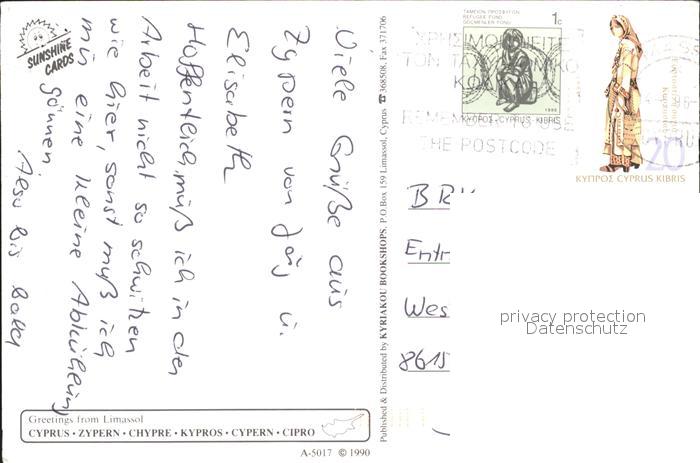 SUNSHINE
CARDS
Viele Grüße aus
Zypern von u.
Elisabeth
Hoffentlich muß ich in der
Arbeit nicht so schwitzen
wie hier, sonst muß ich
mir eine kleine Abkühlung
gönnen.
Also bis bald
Greetings from Limassol
CYPRUS • ZYPERN • CHYPRE • KYPROS • CYPERN • CIPRO
A-5017 © 1990
Published & Distributed by KYRIAKOU BOOKSHOPS, P.O.Box 159 Limassol, Cyprus ☎ 368508, Fax 371706
ΤΑΜΕΙΟΝ ΠΡΟΣΦΥΓΩΝ
REFUGEE FUND
GÖÇMENLER FONU
1c
ΚΥΠΡΟΣ • CYPRUS • KIBRIS
REMEMBER TO USE
THE POSTCODE
20
ΚΥΠΡΟΣ CYPRUS KIBRIS
BR
Entr
Wes
8615
privacy protection
Datenschutz